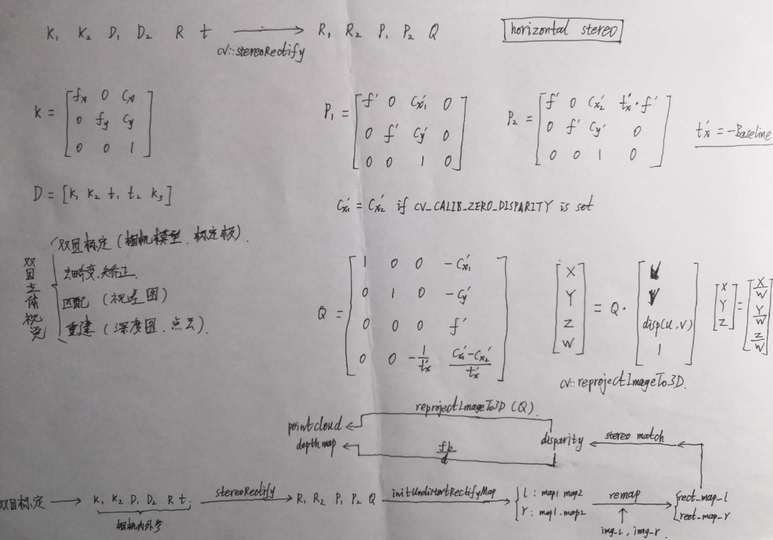 K₁ K₂ D₁ D₂ R t ⟶ R₁ R₂ P₁ P₂ Q
cv::stereoRectify
horizontal stereo
K = [fx 0 cx
0 fy cy
0 0 1]
P₁ = [f' 0 cx₁' 0
0 f' cy' 0
0 0 1 0]
P₂ = [f' 0 cx₂' tx'·f'
0 f' cy' 0
0 0 1 0]
tx' = -Baseline
D = [k₁ k₂ t₁ t₂ k₃]
cx₁' = cx₂' if CV_CALIB_ZERO_DISPARITY is set
双目立体视觉
双目标定 (相机模型、标定板)
去畸变、矫正
匹配 (视差图)
重建 (深度图、点云)
Q = [1 0 0 -cx₁'
0 1 0 -cy'
0 0 0 f'
0 0 -1/tx' (cx₁'-cx₂')/tx']
[X
Y
Z
W] = Q · [
disp(u,v)
1]
[X
Y
Z] = [X/W
Y/W
Z/W]
cv::reprojectImageTo3D
reprojectImageTo3D (Q)
pointcloud
depthmap
fb/d
disparity
stereo match
双目标定 ⟶ K₁ K₂ D₁ D₂ R t
相机内外参
stereoRectify ⟶ R₁ R₂ P₁ P₂ Q
initUndistortRectifyMap ⟶ l: map1 map2
r: map1. map2
remap
img_l, img_r
rect_map_l
rect_map_r